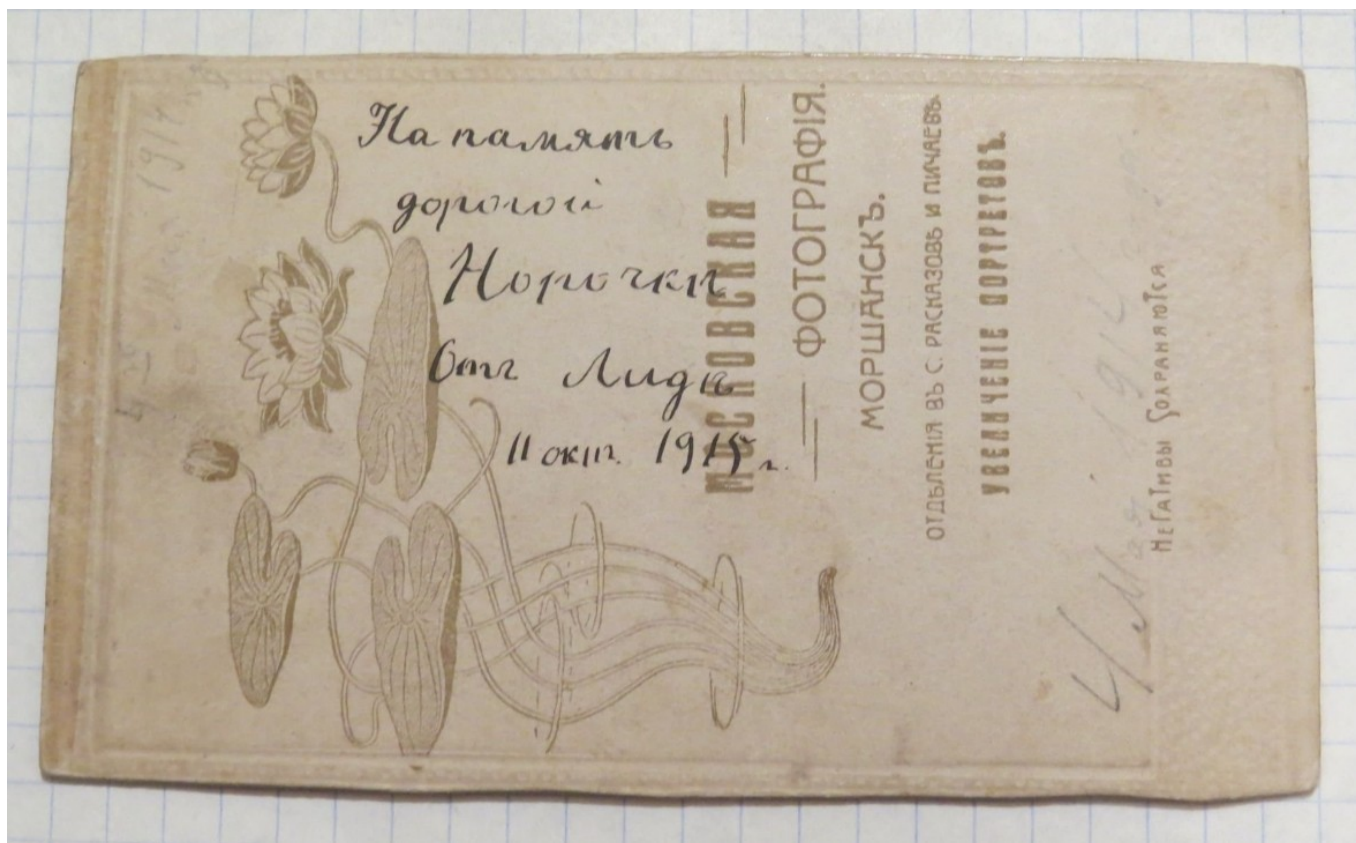 На память
дорогой
Норочки
Отг Лиды
11 окт. 1915 г.
МОСКОВСКАЯ
ФОТОГРАФІЯ.
МОРШАНСКЪ.
ОТДѢЛЕНІЯ ВЪ С. РАСКАЗОВѢ И ПИЧАЕВѢ.
УВЕЛИЧЕНІЕ ПОРТРЕТОВЪ.
НЕГАТИВЫ СОХРАНЯЮТСЯ